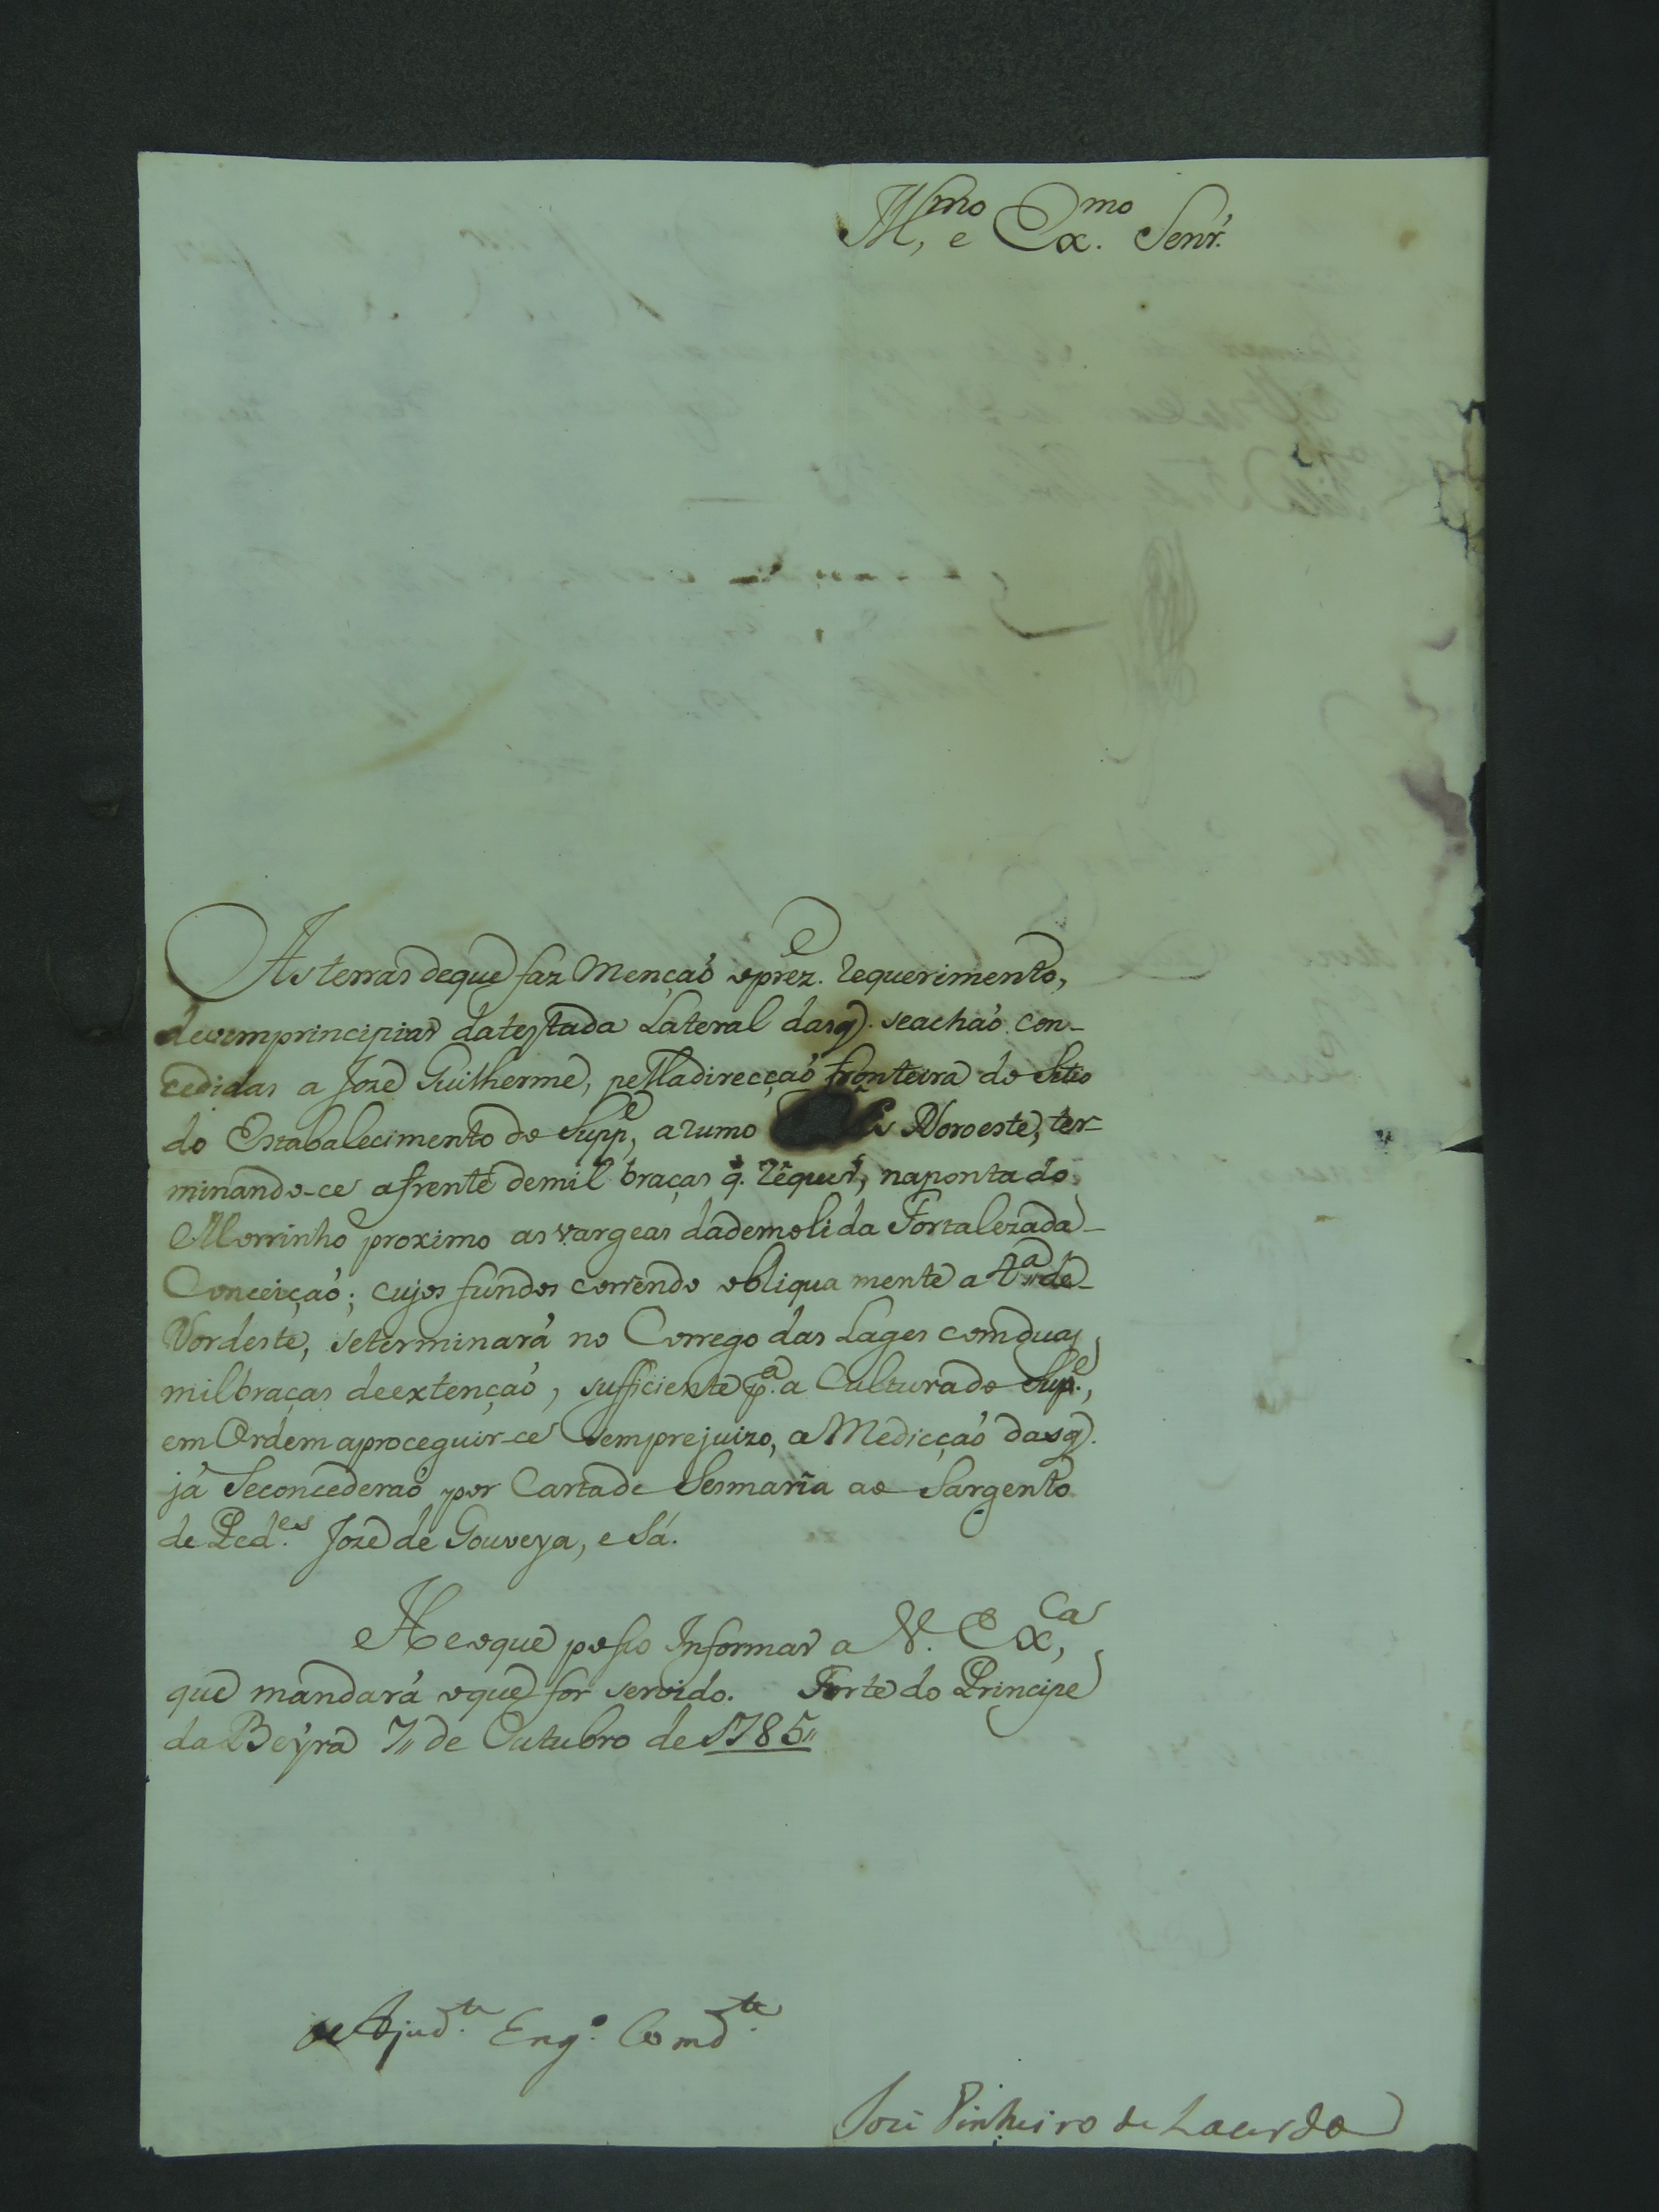 Ill.mo, e Ex.mo Senr.
As terras deque faz Mençaõ oprez.e requerimento,
devemprincipiar datestada Lateral dasq. seachaõ con-
cedidas a Jozé Guilherme, pella direcçaõ fronteira do Sitio
do Estabalecimento do Supp.e, a rumo Noroeste, ter-
minando-ce afrente demil braças q. requer, naponta do
Morrinho proximo as vargeas dademolida Fortalezada
Conceiçaõ; cujos fundos correndo obliqua mente a 4.a de
Nordeste, seterminará no Corrego das Lages comduas
milbraças deextençaõ, sufficiente p.a a Culturado Sup.e,
em Ordem aproceguir-ce semprejuizo, a Medicçaõ dasq.
já Seconcederaõ por Cartade Sesmaria ao Sargento
de Ped.es Jozé de Gouveya, e Sá.
He oque posso Informar a V. Ex.ca,
que mandará oque for servido. Forte do Principe
da Beyra 7,, de Outubro de 1785,,
Ajud.te Eng.o Comd.te
José Pinheiro de Lacerda